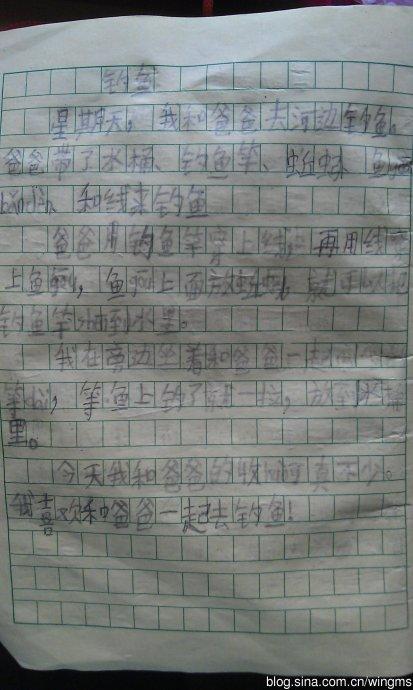 钓鱼
星期天，我和爸爸去河边钓鱼。
爸爸带了水桶、钓鱼竿、蚯蚓、鱼
和线来钓鱼
爸爸用钓鱼竿穿上线，再用线
上鱼gou，鱼gou上面放蚯蚓，就可以把
钓鱼竿shuai到水里。
我在旁边坐着和爸爸一起
等dai，等鱼上钓了就一拉，放到水桶
里。
今天我和爸爸的收huo可真不少。
我喜欢和爸爸一起去钓鱼！
blog.sina.com.cn/wingms